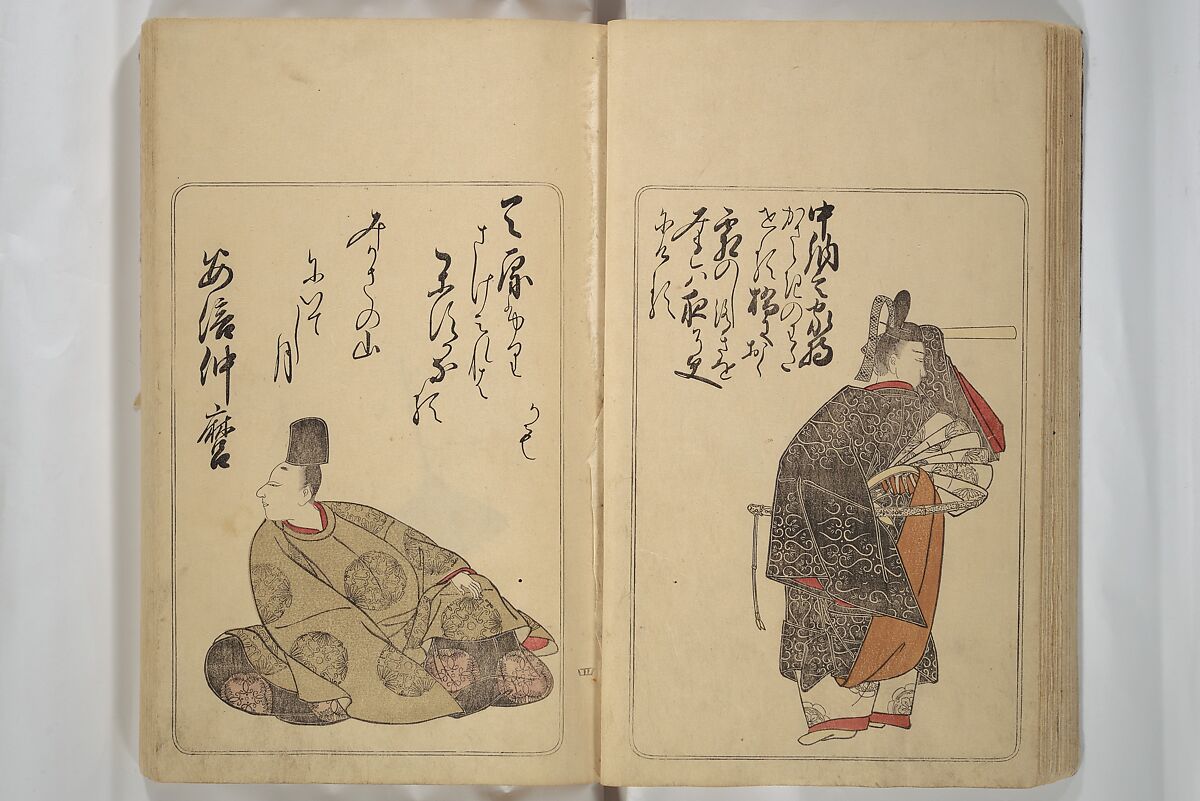 中納言家持
かさゝきのわた
せる橋におく
霜のしろきを
みれは夜そ更
にける
天原ふり
さけみれは
かすかなる
みかさの山
にいてし月
かも
安倍仲麿